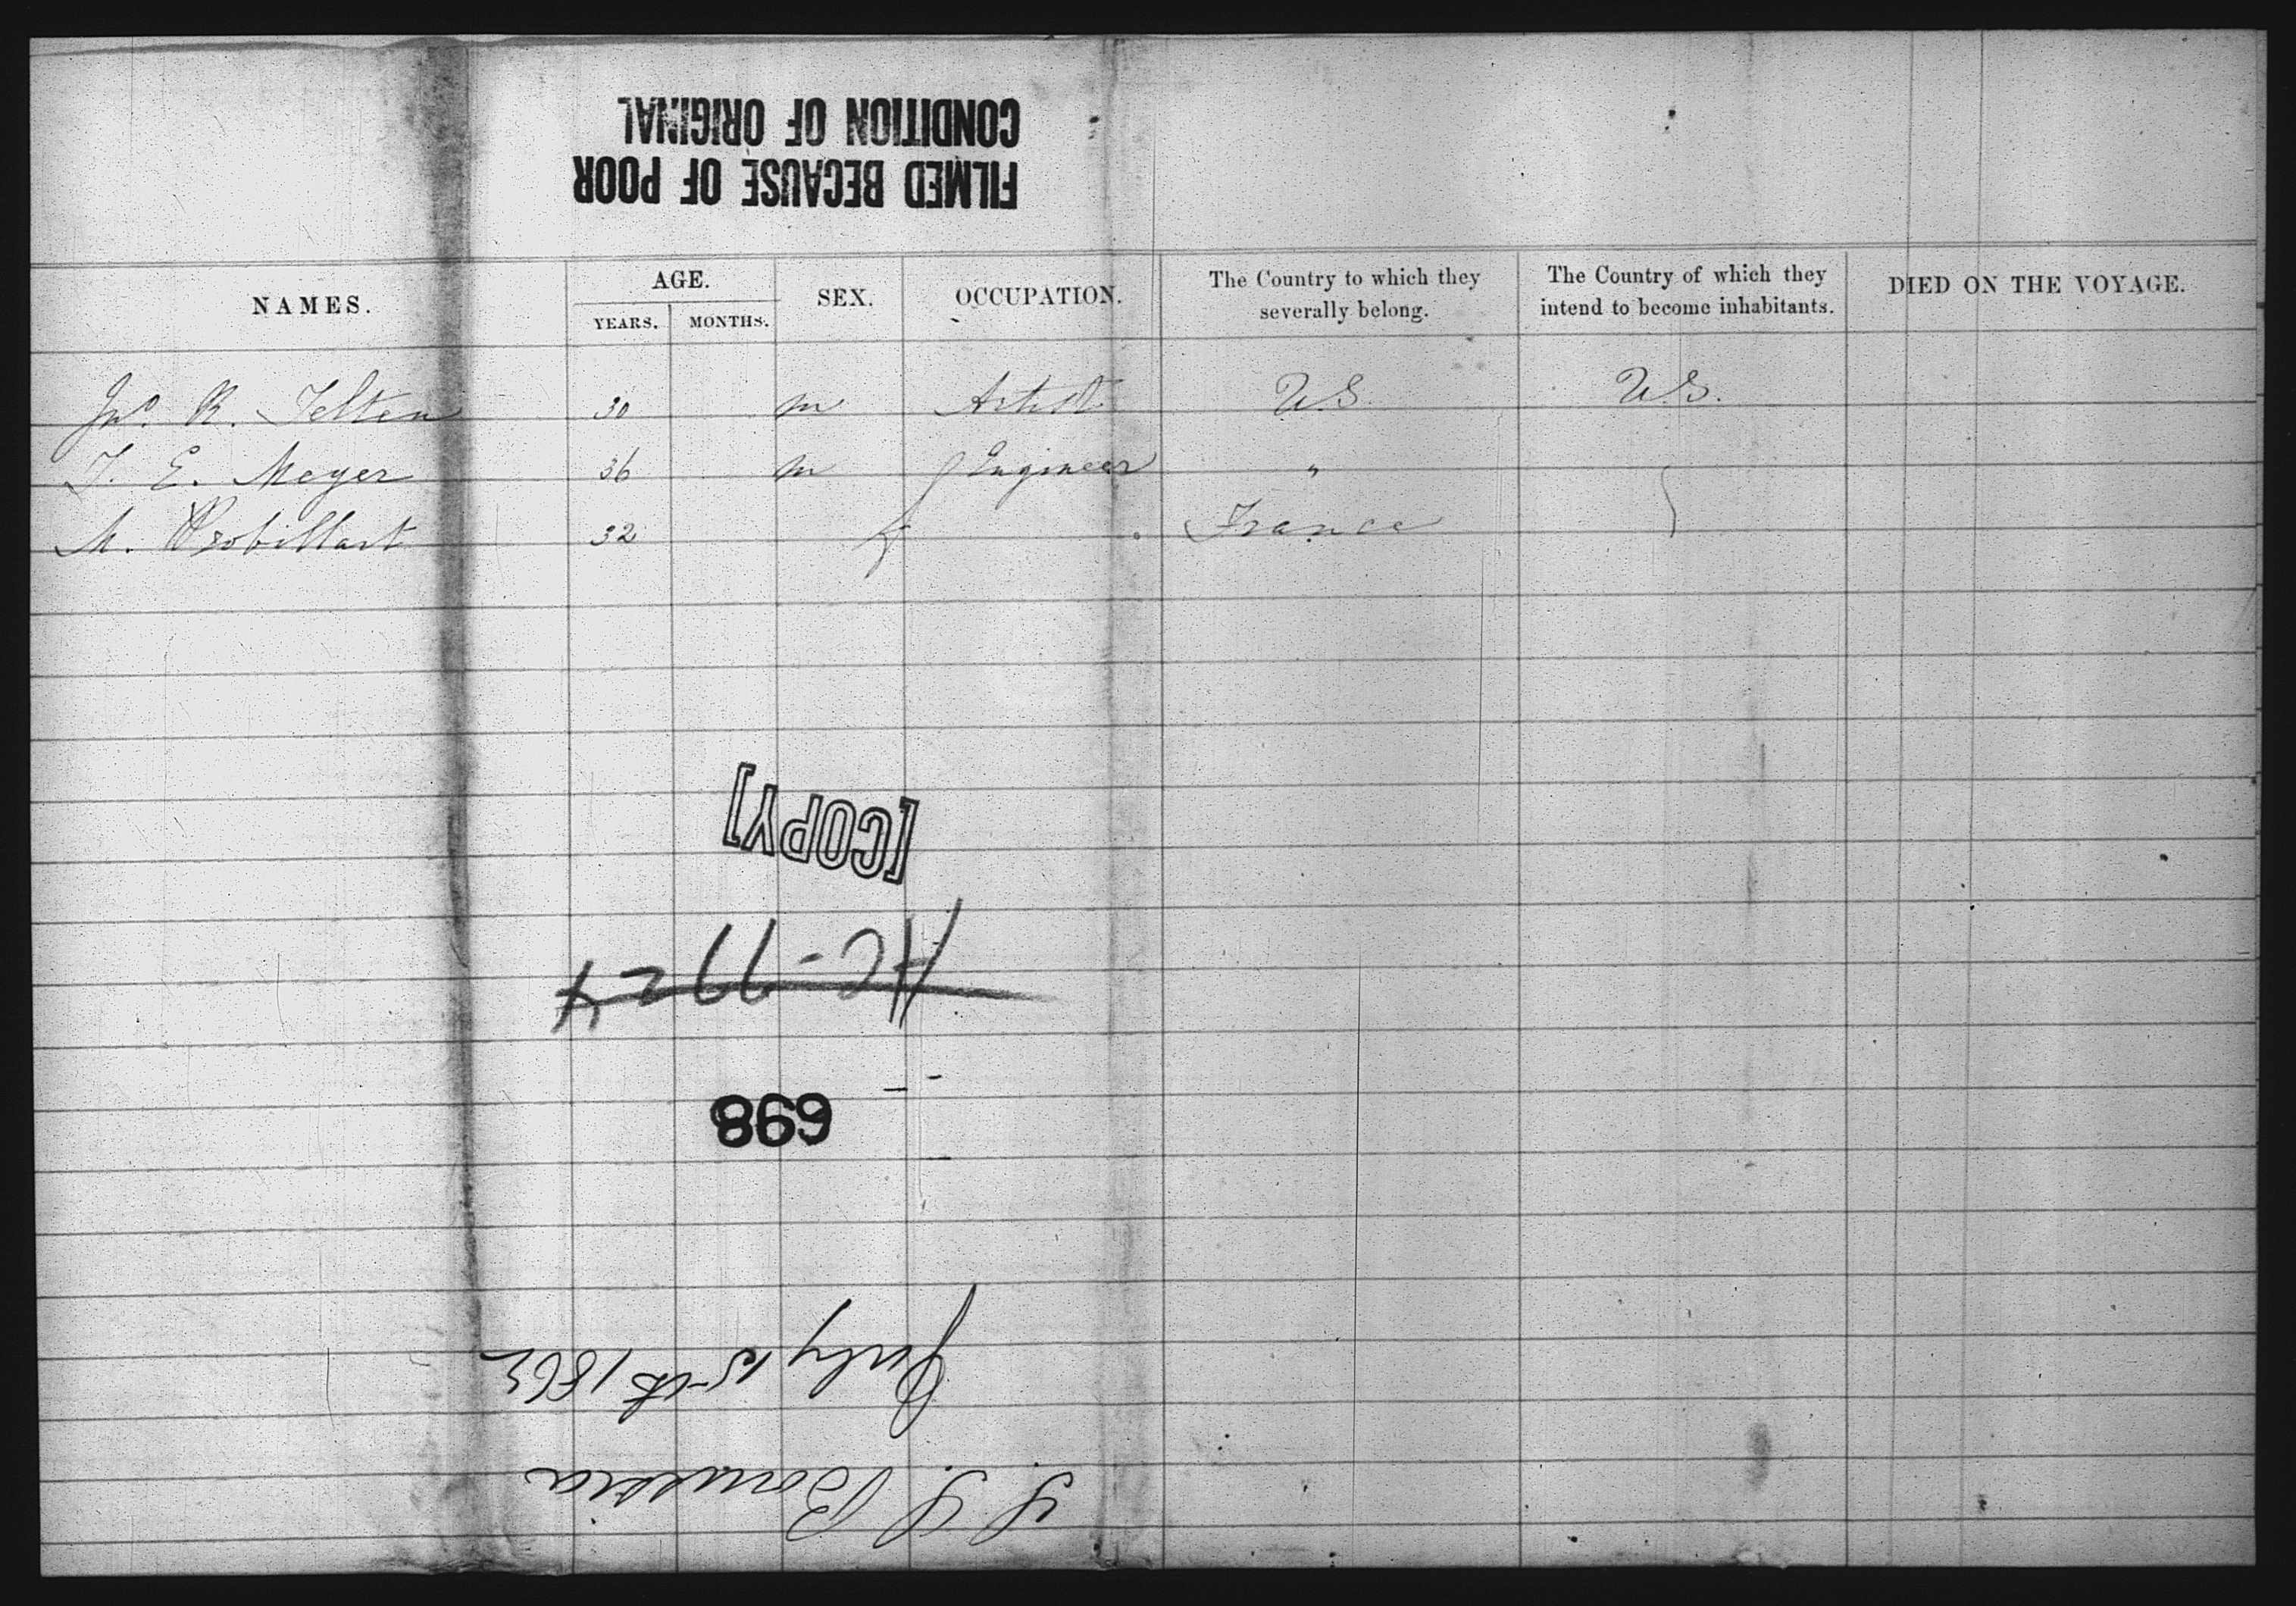 FILMED BECAUSE OF POOR
CONDITION OF ORIGINAL
NAMES. AGE. SEX. OCCUPATION. The Country to which they severally belong. The Country of which they intend to become inhabitants. DIED ON THE VOYAGE.
YEARS. MONTHS.
Jno. R. Telten 30 m Artist U.S. U.S.
J. E. Meyer 36 m Engineer "
M. Probillart 32 f France
[COPY]
AC-7724
869
S. S. Borussia
July 15th 1862